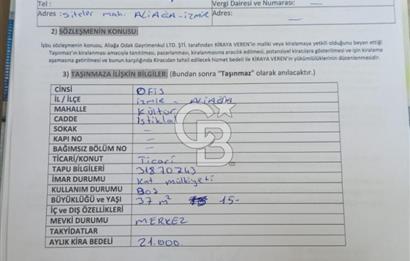 Vergi Dairesi ve Numarası :
Adres : Siteler mah. ALİAĞA-İZMİR
Adres:
2) SÖZLEŞMENİN KONUSU:
İşbu sözleşmenin konusu, Aliağa Odak Gayrimenkul LTD. ŞTİ. tarafından KİRAYA VEREN'in maliki veya kiralamaya yetkili olduğunu beyan ettiği
Taşınmaz'ın kiralanması amacıyla tanıtılması, pazarlanması, kiralanmasına aracılık edilmesi, potansiyel kiracılara gösterilmesi ve işin kiralama
aşamasına getirilmesi ve bunun karşılığında Kiracıdan tahsil edilecek hizmet bedeli ile KİRAYA VEREN'in yükümlülüklerinin düzenlenmesidir.
3) TAŞINMAZA İLİŞKİN BİLGİLER: (Bundan sonra "Taşınmaz" olarak anılacaktır.)
CİNSİ OFİS
İL / İLÇE İzmir - ALİAĞA
MAHALLE Kültür
CADDE İstiklal
SOKAK -
KAPI NO -
BAĞIMSIZ BÖLÜM NO -
TİCARİ/KONUT Ticari
TAPU BİLGİLERİ 31870243
İMAR DURUMU Kat mülkiyeti
KULLANIM DURUMU Boş
BÜYÜKLÜĞÜ ve YAŞI 37 m² 15-
İÇ ve DIŞ ÖZELLİKLERİ
MEVKİ DURUMU MERKEZ
TAKYİDATLAR
AYLIK KİRA BEDELİ 21.000
CB